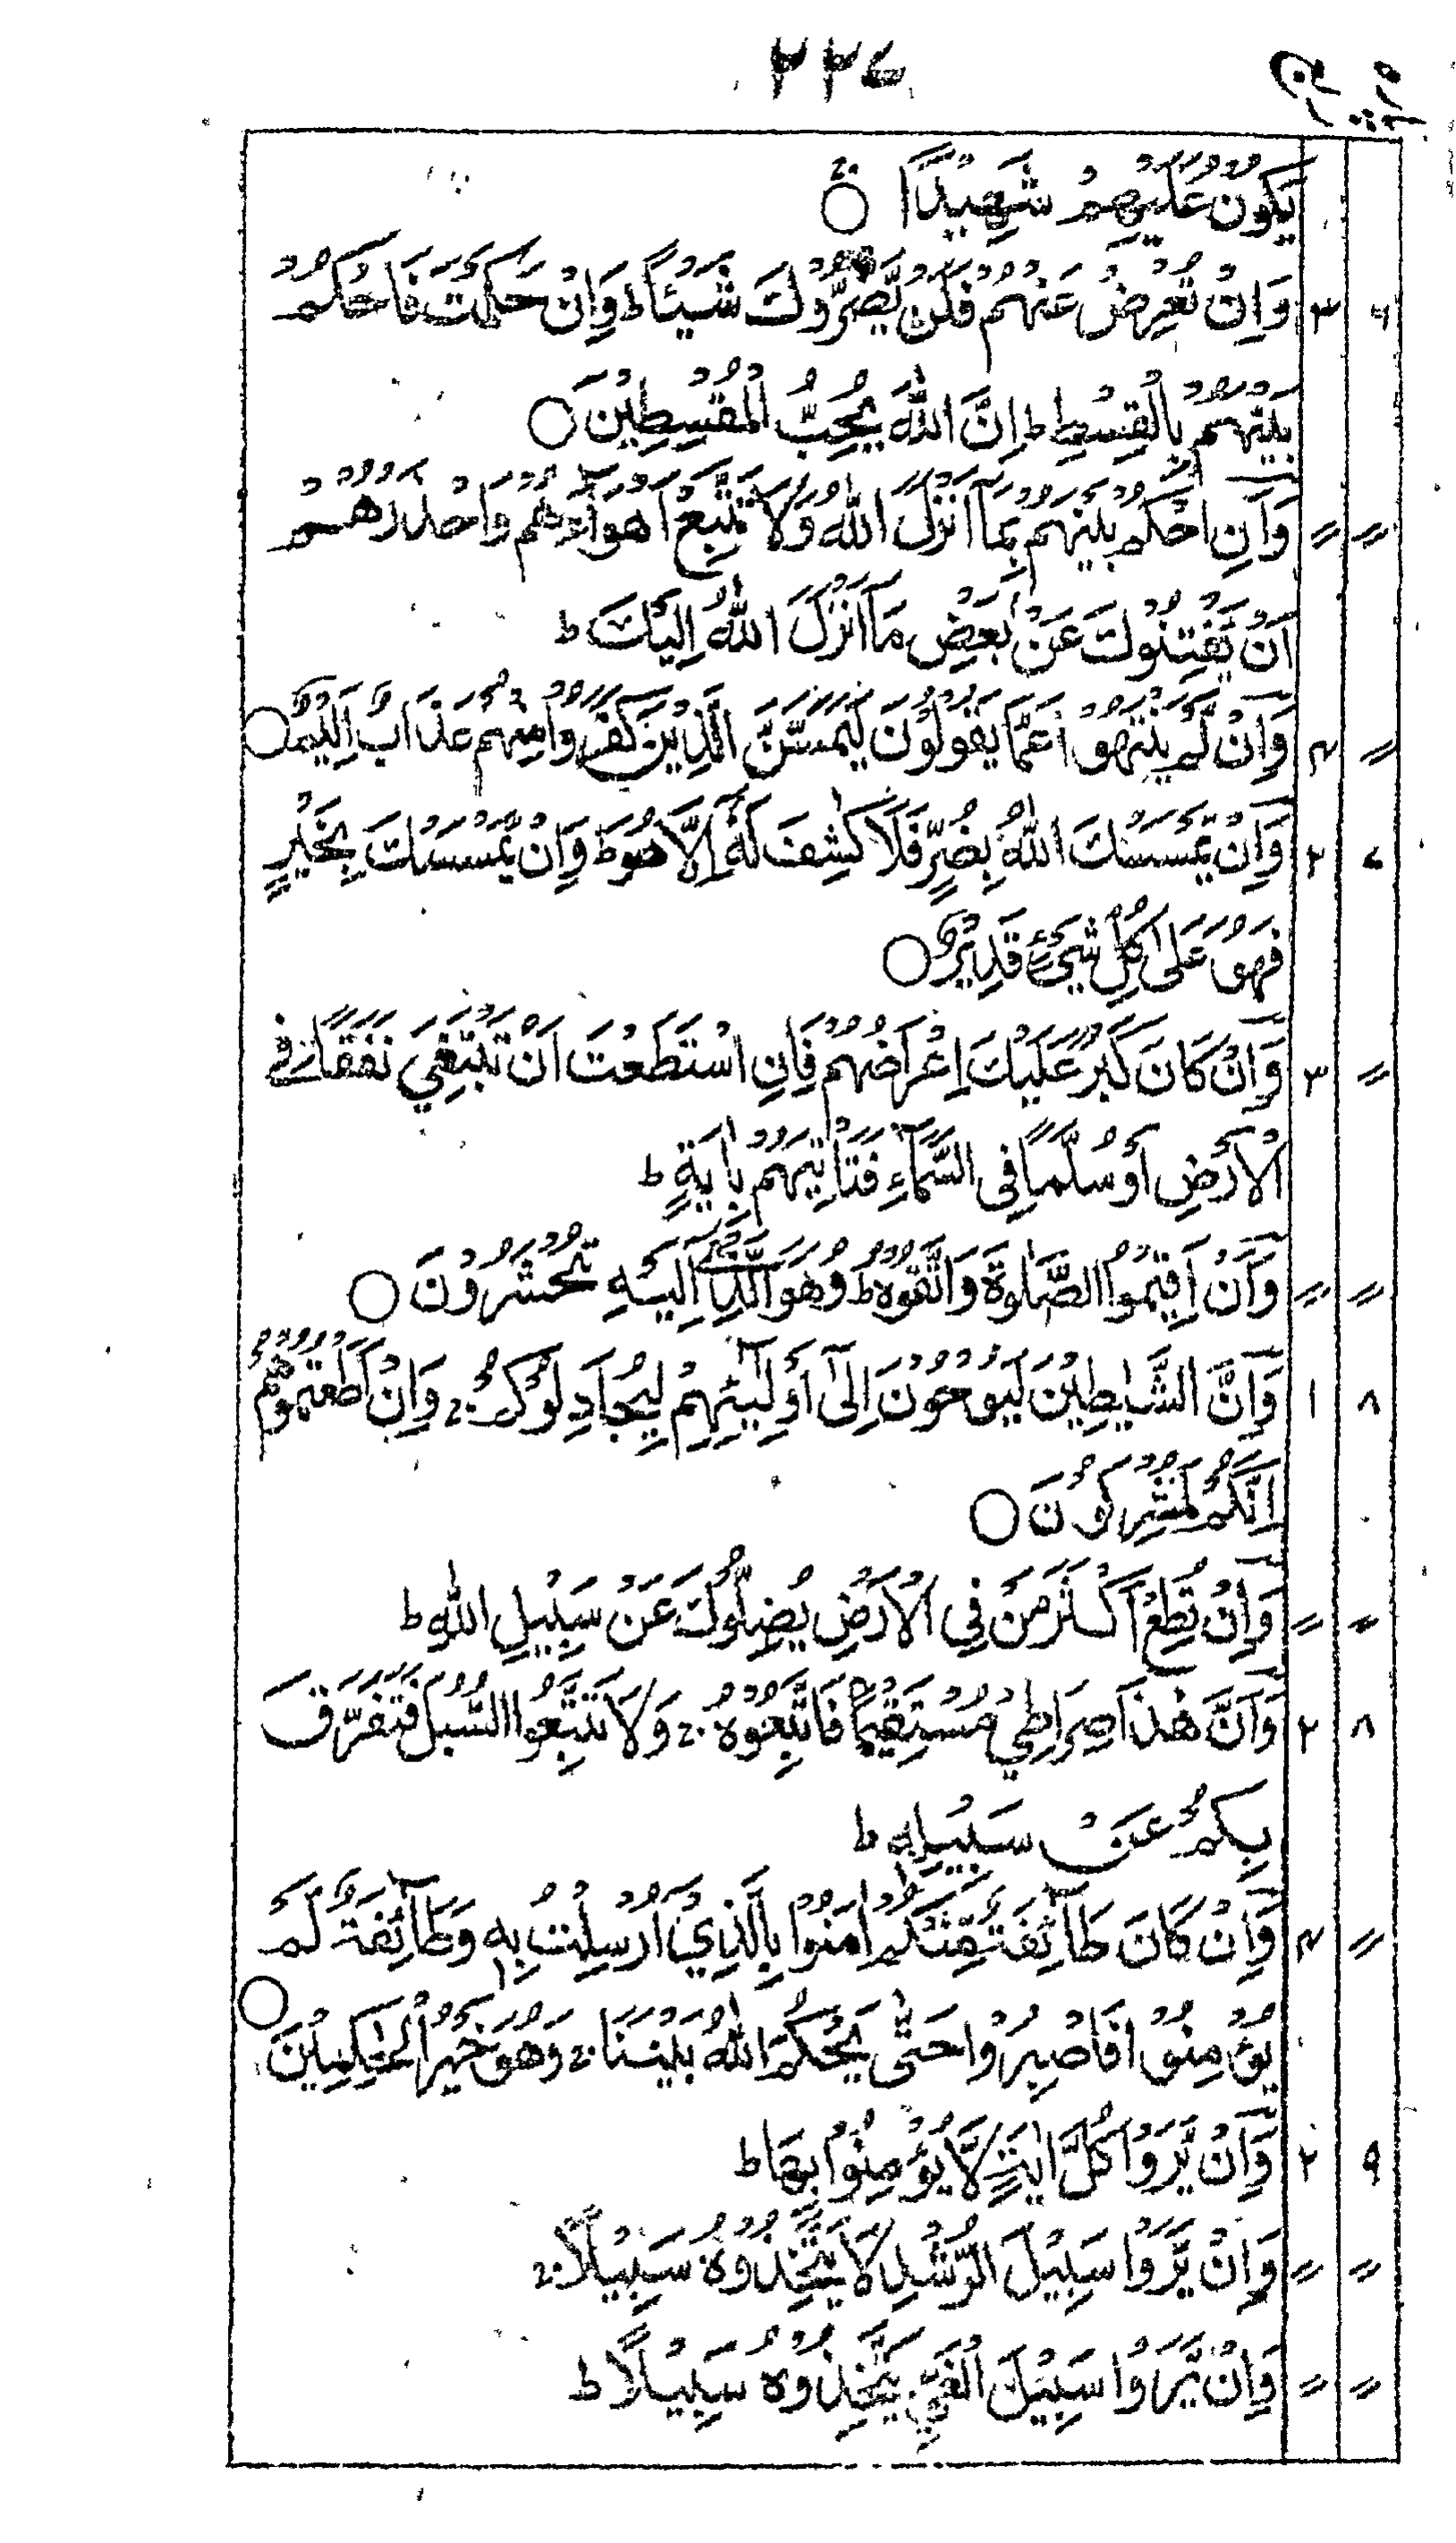 ۲۲۷
يَكُونُ عَلَيْهِمْ شَهِيْدًا ○
۶ ۳ وَاِنْ تُعْرِضْ عَنْهُمْ فَلَنْ يَّضُرُّوْكَ شَيْئًا ط وَاِنْ حَكَمْتَ فَاحْكُمْ
بَيْنَهُمْ بِالْقِسْطِ ط اِنَّ اللّٰهَ يُحِبُّ الْمُقْسِطِيْنَ ○
〃 〃 وَاَنِ احْكُمْ بَيْنَهُمْ بِمَآ اَنْزَلَ اللّٰهُ وَلَا تَتَّبِعْ اَهْوَآءَهُمْ وَاحْذَرْهُمْ
اَنْ يَّفْتِنُوْكَ عَنْ بَعْضِ مَآ اَنْزَلَ اللّٰهُ اِلَيْكَ ط
〃 ۴ وَاِنْ لَّمْ يَنْتَهُوْا عَمَّا يَقُوْلُوْنَ لَيَمَسَّنَّ الَّذِيْنَ كَفَرُوْا مِنْهُمْ عَذَابٌ اَلِيْمٌ ○
۷ ۲ وَاِنْ يَّمْسَسْكَ اللّٰهُ بِضُرٍّ فَلَا كَاشِفَ لَهٗٓ اِلَّا هُوَ ط وَاِنْ يَّمْسَسْكَ بِخَيْرٍ
فَهُوَ عَلٰى كُلِّ شَيْءٍ قَدِيْرٌ ○
〃 ۳ وَاِنْ كَانَ كَبُرَ عَلَيْكَ اِعْرَاضُهُمْ فَاِنِ اسْتَطَعْتَ اَنْ تَبْتَغِيَ نَفَقًا فِي
الْاَرْضِ اَوْ سُلَّمًا فِي السَّمَآءِ فَتَاْتِيَهُمْ بِاٰيَةٍ ط
〃 〃 وَاَنْ اَقِيْمُوا الصَّلٰوةَ وَاتَّقُوْهُ ط وَهُوَ الَّذِيْٓ اِلَيْهِ تُحْشَرُوْنَ ○
۸ ۱ وَاِنَّ الشَّيٰطِيْنَ لَيُوْحُوْنَ اِلٰٓى اَوْلِيٰٓئِهِمْ لِيُجَادِلُوْكُمْ ج وَاِنْ اَطَعْتُمُوْهُمْ
اِنَّكُمْ لَمُشْرِكُوْنَ ○
〃 〃 وَاِنْ تُطِعْ اَكْثَرَ مَنْ فِي الْاَرْضِ يُضِلُّوْكَ عَنْ سَبِيْلِ اللّٰهِ ط
۸ ۲ وَاَنَّ هٰذَا صِرَاطِيْ مُسْتَقِيْمًا فَاتَّبِعُوْهُ ج وَلَا تَتَّبِعُوا السُّبُلَ فَتَفَرَّقَ
بِكُمْ عَنْ سَبِيْلِهٖ ط
〃 ۴ وَاِنْ كَانَ طَآئِفَةٌ مِّنْكُمْ اٰمَنُوْا بِالَّذِيْٓ اُرْسِلْتُ بِهٖ وَطَآئِفَةٌ لَّمْ
يُؤْمِنُوْا فَاصْبِرُوْا حَتّٰى يَحْكُمَ اللّٰهُ بَيْنَنَا ج وَهُوَ خَيْرُ الْحٰكِمِيْنَ ○
۹ ۲ وَاِنْ يَّرَوْا كُلَّ اٰيَةٍ لَّا يُؤْمِنُوْا بِهَا ط
〃 〃 وَاِنْ يَّرَوْا سَبِيْلَ الرُّشْدِ لَا يَتَّخِذُوْهُ سَبِيْلًا ج
〃 〃 وَاِنْ يَّرَوْا سَبِيْلَ الْغَيِّ يَتَّخِذُوْهُ سَبِيْلًا ط